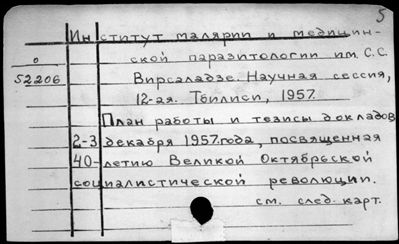 5
Институт малярии и медицин-
о ской паразитологии им. С.С.
52206 Вирсаладзе. Научная сессия,
12-ая. Тбилиси, 1957.
План работы и тезисы докладов
2-3 декабря 1957.года, посвященная
40-летию Великой Октябрьской
социалистической революции.
см. след. карт.